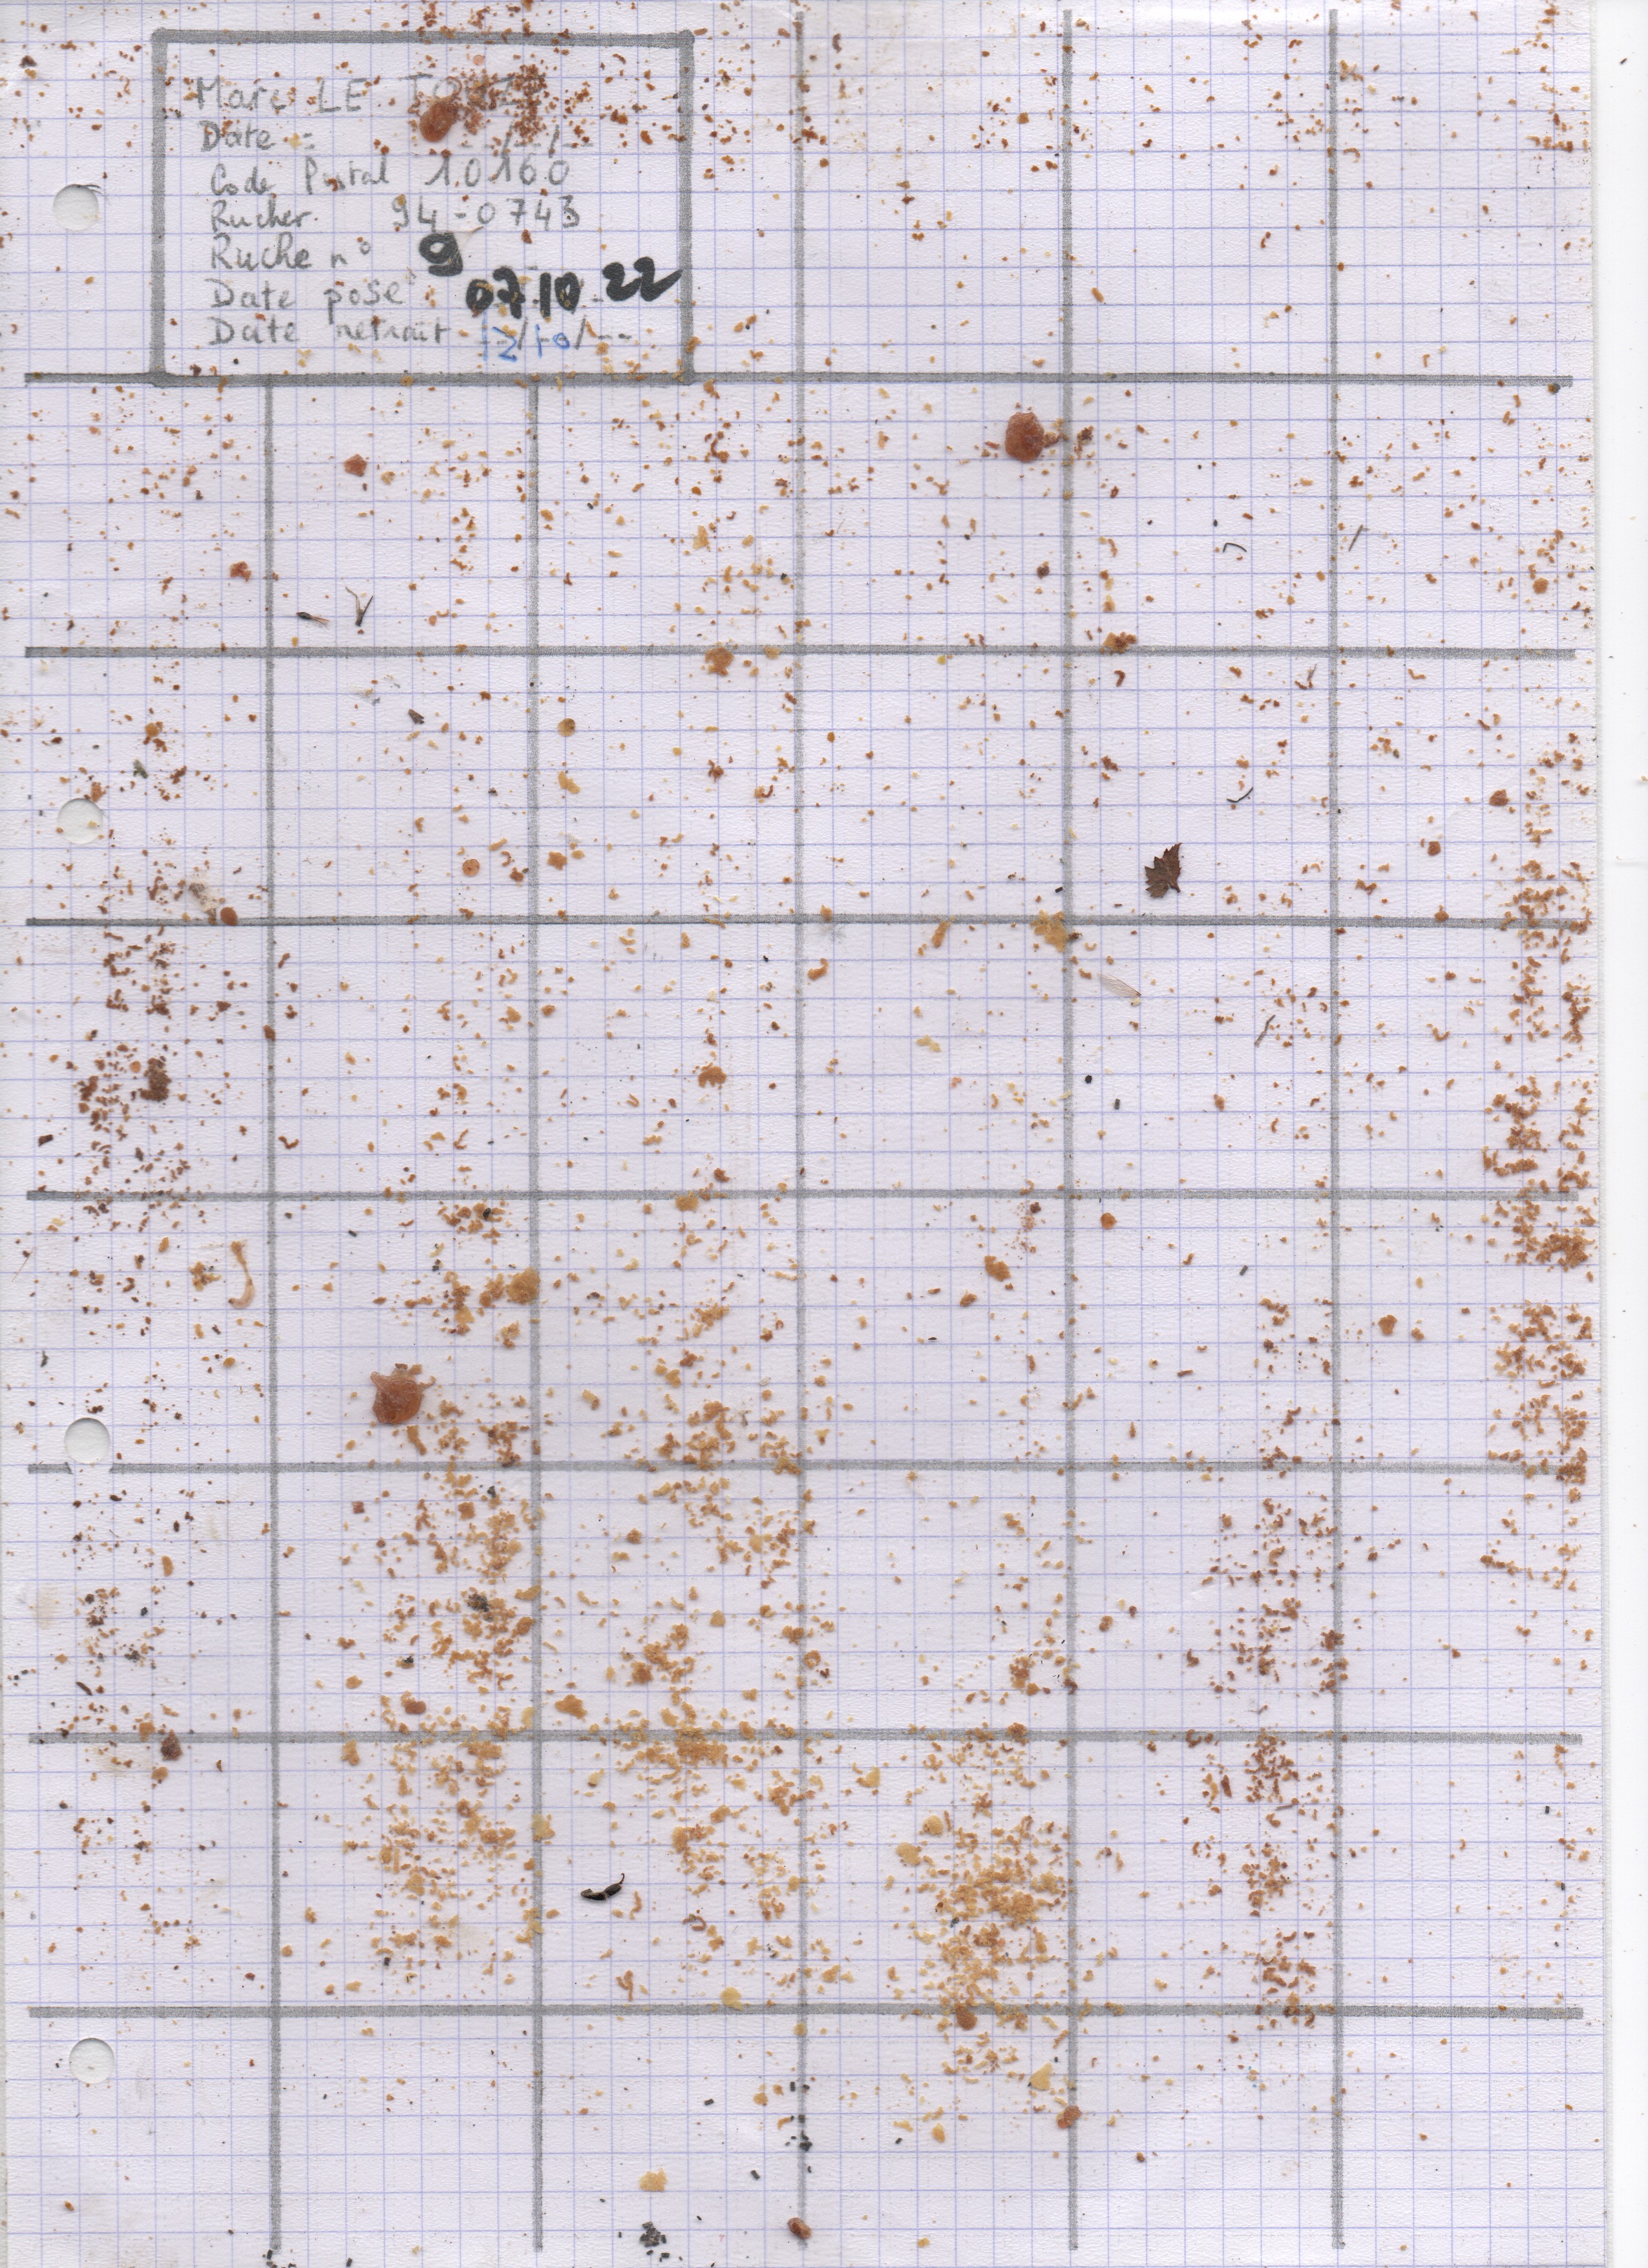 Marc LE TOUZE
Date = --/--/--
Code Postal 10160
Rucher 94-0743
Ruche n° 9
Date pose 07 10 22
Date retrait 12/10/--